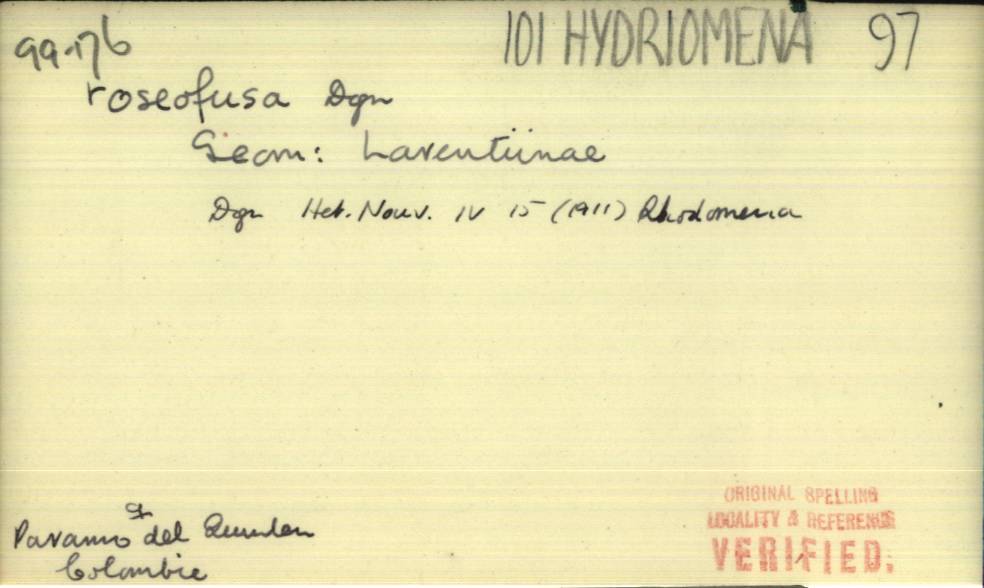 99-176
101 HYDRIOMENA 97
roseofusa Dgn
Geom: Larentiinae
Dgn Het. Nouv. IV 15 (1911) Rhodomena
Paramo del
Colombie
ORIGINAL SPELLING
LOCALITY & REFERENCE
VERIFIED.